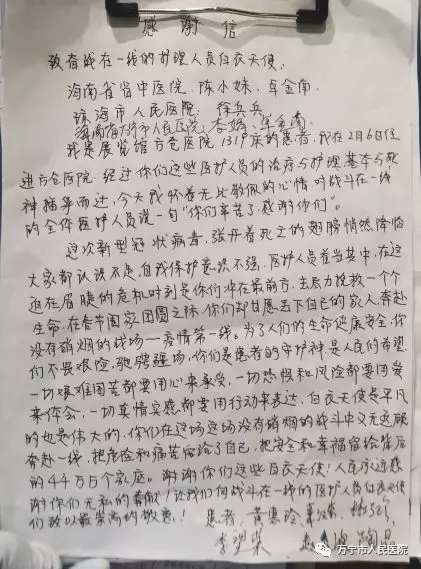 感谢信
致奋战在一线的护理人员白衣天使:
海南省省中医院. 陈小妹、卓金南
琼海市人民医院: 徐兵兵
海南省万宁市人民医院 李婷、
我是展览馆方舱医院1319床的患者,我在2月6日住
进方仓医院.经过你们这些医护人员的治疗与护理基本与死
神擦肩而过,今天我怀着无比敬佩的心情对战斗在一线
的全体医护人员说一句“你们辛苦了,感谢你们”。
这次新型冠状病毒,张开着死亡的翅膀悄然降临
大家都认识不足,自我保护意识不强.医护人员首当其中,在这
迫在眉睫的危机时刻是你们冲在最前方,去尽力挽救一个个
生命,在春节阖家团圆之际,你们却甘愿丢下自己的家人.奔赴
没有硝烟的战场—疫情第一线。为了人们的生命健康安全,你
们不畏艰险,驰骋疆场,你们是患者的守护神是人民的希望
一切艰难困苦都要用心来承受,一切恐惧和风险都要用爱
来体会,一切真情实感都要用行动来表达,白衣天使是平凡
的也是伟大的,你们在这场这场没有硝烟的战斗中义无返顾
奔赴一线,把危险和痛苦留给了自己,把安全和幸福留给背后
的44万5个家庭。谢谢你们这些白衣天使!人民永远感
谢你们无私的奉献!让我们向战斗在一线的医护人员白衣天使
们致以最崇高的敬意!
患者: 黄惠玲
李望荣
万宁市人民医院